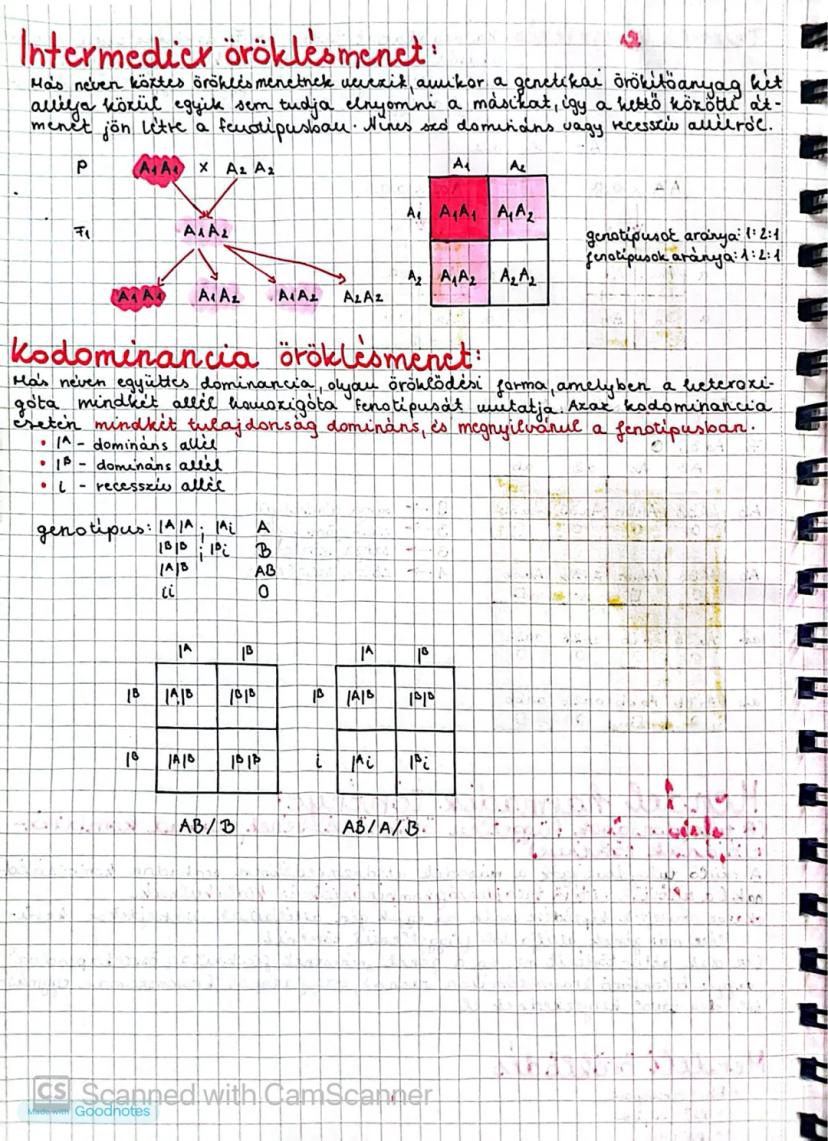 12
Intermedier öröklésmenet:
Más néven köztes öröklésmenetnek nevezik, amikor a genetikai örökítőanyag két
allélja közül egyik sem tudja elnyomni a másikat, így a kettő közötti át-
menet jön létre a fenotípusban. Nincs szó domináns vagy recesszív allélról.
P A₁A₁ x A₂A₂
F₁ A₁A₂
A₁A₁ A₁A₂ A₁A₂ A₂A₂
A₁ A₂
A₁ A₁A₁ A₁A₂
A₂ A₁A₂ A₂A₂
genotípusok aránya: 1:2:1
fenotípusok aránya: 1:2:1
Kodominancia öröklésmenet:
Más néven együttes dominancia, olyan öröklődési forma, amelyben a heterozi-
góta mindkét allél homozigóta fenotípusát mutatja. Azaz kodominancia
esetén mindkét tulajdonság domináns, és megnyilvánul a fenotípusban.
• Iᴬ - domináns allél
• Iᴮ - domináns allél
• i - recesszív allél
genotípus: IᴬIᴬ ; Iᴬi A
IᴮIᴮ ; Iᴮi B
IᴬIᴮ AB
ii 0
Iᴬ Iᴮ
Iᴮ IᴬIᴮ IᴮIᴮ
Iᴮ IᴬIᴮ IᴮIᴮ
AB/B
Iᴬ Iᴮ
Iᴮ IᴬIᴮ IᴮIᴮ
i Iᴬi Iᴮi
AB/A/B
CS Scanned with CamScanner
Made with Goodnotes